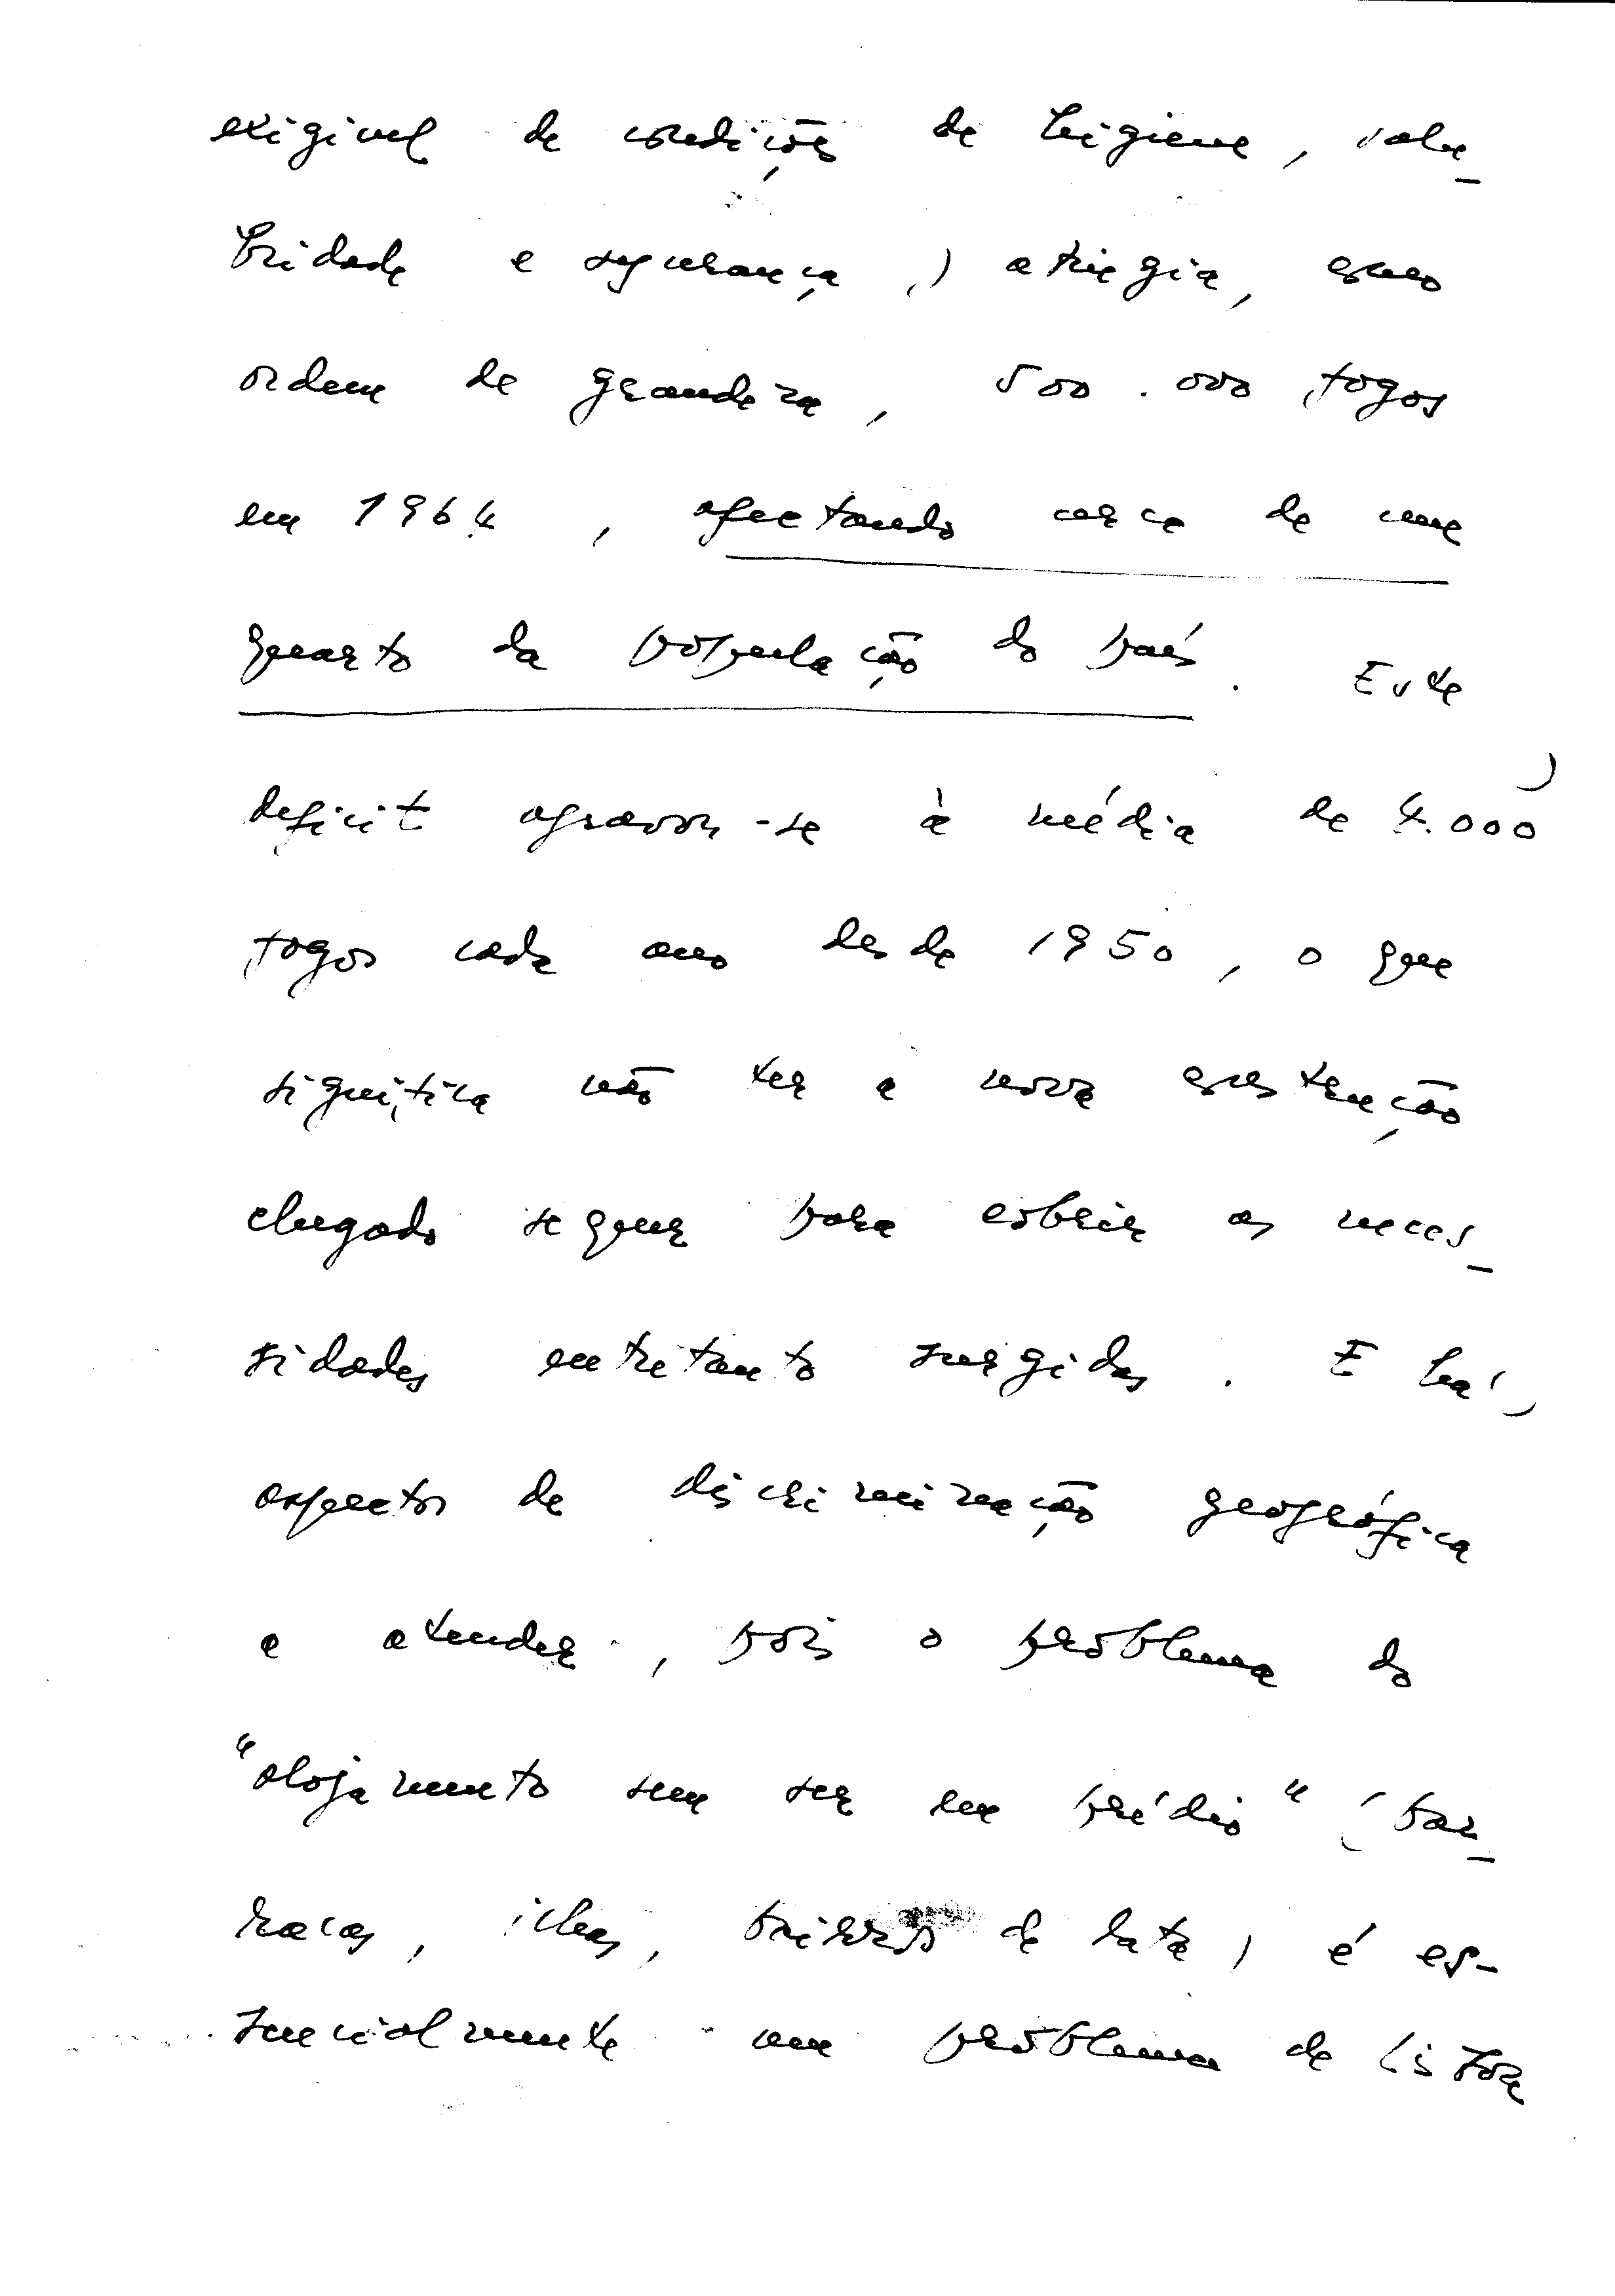 exigivel de condições de higiene, salu-
bridade e segurança,) atingia, como
ordem de grandeza, 500.000 fogos
em 1964, afectando cerca de um
quarto da população do país. Este
deficit agravou-se à média de 4.000
fogos cada ano desde 1950, o que
significa não ter a nova construção
chegado sequer para cobrir as neces-
sidades entretanto surgidas. E há,
aspectos de discriminação geográfica
a atender, pois o problema do
"alojamento sem ser em prédio" (bar-
racas, ilhas, bairros de lata) é es-
sencialmente um problema de Lisboa